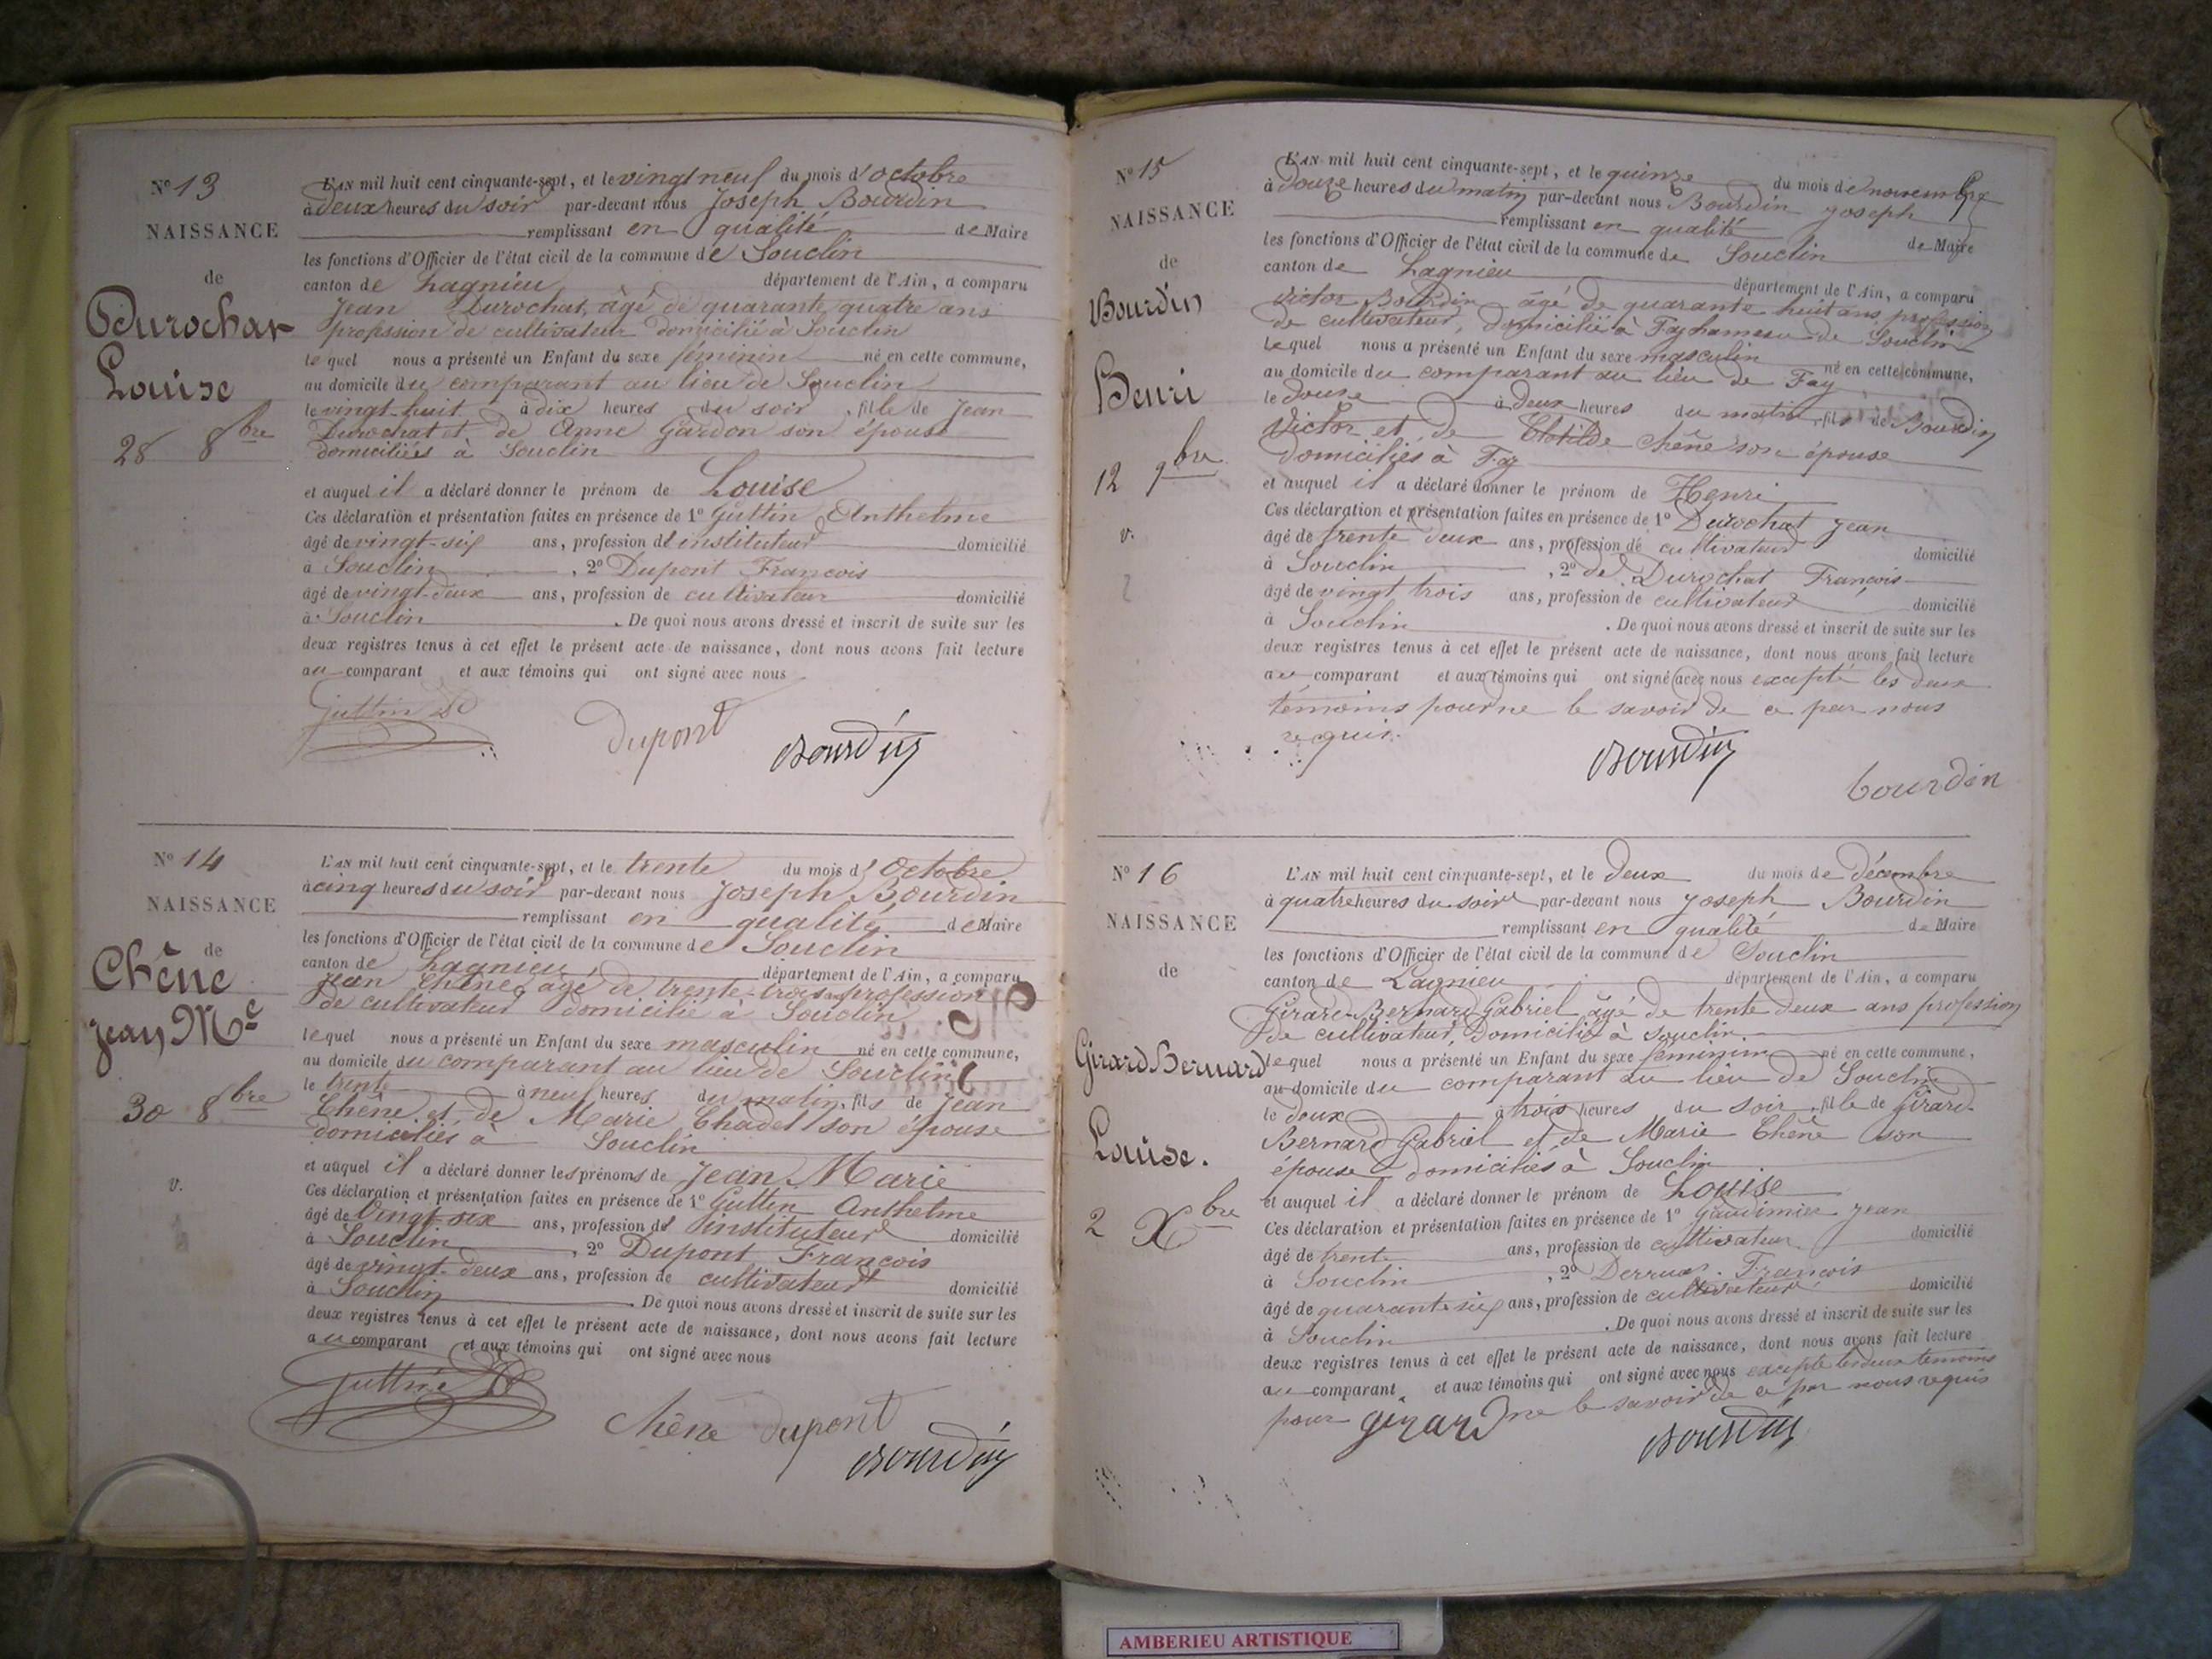 N° 13
NAISSANCE
de
Durochat
Louise
28 8bre
L'AN mil huit cent cinquante-sept, et le vingt neuf du mois d'octobre
à deux heures du soir par-devant nous Joseph Bourdin
remplissant en qualité de Maire
les fonctions d'Officier de l'état civil de la commune de Souclin
canton de Lagnieu département de l'Ain, a comparu
Jean Durochat, âgé de quarante quatre ans
profession de cultivateur domicilié à Souclin
lequel nous a présenté un Enfant du sexe féminin né en cette commune,
au domicile du comparant au lieu de Souclin
le vingt-huit à dix heures du soir, fille de Jean
Durochat et de Anne Gardon son épouse
domiciliés à Souclin
et auquel il a déclaré donner le prénom de Louise
Ces déclaration et présentation faites en présence de 1° Guttin Anthelme
âgé de vingt-six ans, profession d'instituteur domicilié
à Souclin, 2° Dupont François
âgé de vingt-deux ans, profession de cultivateur domicilié
à Souclin. De quoi nous avons dressé et inscrit de suite sur les
deux registres tenus à cet effet le présent acte de naissance, dont nous avons fait lecture
au comparant et aux témoins qui ont signé avec nous
Guttin
Dupont
Bourdin
N° 14
NAISSANCE
de
Chêne
Jean Me
30 8bre
v.
L'AN mil huit cent cinquante-sept, et le trente du mois d'Octobre
à cinq heures du soir par-devant nous Joseph Bourdin
remplissant en qualité de Maire
les fonctions d'Officier de l'état civil de la commune de Souclin
canton de Lagnieu, département de l'Ain, a comparu
Jean Chêne âgé de trente-trois ans profession
de cultivateur domicilié à Souclin
lequel nous a présenté un Enfant du sexe masculin né en cette commune,
au domicile du comparant au lieu de Souclin
le trente à neuf heures du matin, fils de Jean
Chêne et de Marie Chadel son épouse
domiciliés à Souclin
et auquel il a déclaré donner les prénoms de Jean Marie
Ces déclaration et présentation faites en présence de 1° Guttin Anthelme
âgé de vingt six ans, profession d'instituteur domicilié
à Souclin, 2° Dupont François
âgé de vingt-deux ans, profession de cultivateur domicilié
à Souclin. De quoi nous avons dressé et inscrit de suite sur les
deux registres tenus à cet effet le présent acte de naissance, dont nous avons fait lecture
au comparant et aux témoins qui ont signé avec nous
Guttin
Chêne Dupont
Bourdin
N° 15
NAISSANCE
de
Bourdin
Henri
12 9bre
v.
L'AN mil huit cent cinquante-sept, et le quinze du mois de novembre
à douze heures du matin par-devant nous Bourdin Joseph
remplissant en qualité de Maire
les fonctions d'Officier de l'état civil de la commune de Souclin
canton de Lagnieu département de l'Ain, a comparu
Victor Bourdin âgé de quarante huit ans profession
de cultivateur, domicilié à Fay hameau de Souclin
lequel nous a présenté un Enfant du sexe masculin né en cette commune,
au domicile du comparant au lieu de Fay
le douze à deux heures du matin, fils de Bourdin
Victor et de Clotilde Chêne son épouse
domiciliés à Fay
et auquel il a déclaré donner le prénom de Henri
Ces déclaration et présentation faites en présence de 1° Durochat Jean
âgé de trente deux ans, profession de cultivateur domicilié
à Souclin, 2° de Durochat François
âgé de vingt trois ans, profession de cultivateur domicilié
à Souclin. De quoi nous avons dressé et inscrit de suite sur les
deux registres tenus à cet effet le présent acte de naissance, dont nous avons fait lecture
au comparant et aux témoins qui ont signé avec nous excepté les deux
témoins pour ne le savoir de ce par nous
requis.
Bourdin
bourdin
N° 16
NAISSANCE
de
Girard Bernard
Louise.
2 Xbre
L'AN mil huit cent cinquante-sept, et le deux du mois de décembre
à quatre heures du soir par-devant nous Joseph Bourdin
remplissant en qualité de Maire
les fonctions d'Officier de l'état civil de la commune de Souclin
canton de Lagnieu département de l'Ain, a comparu
Girard-Bernard Gabriel âgé de trente deux ans profession
de cultivateur, domicilié à Souclin
lequel nous a présenté un Enfant du sexe féminin né en cette commune,
au domicile du comparant au lieu de Souclin
le deux à trois heures du soir, fille de Girard-
Bernard Gabriel et de Marie Chêne son
épouse domiciliés à Souclin
et auquel il a déclaré donner le prénom de Louise
Ces déclaration et présentation faites en présence de 1° Jean
âgé de trente ans, profession de cultivateur domicilié
à Souclin, 2° François
âgé de quarante six ans, profession de cultivateur domicilié
à Souclin. De quoi nous avons dressé et inscrit de suite sur les
deux registres tenus à cet effet le présent acte de naissance, dont nous avons fait lecture
au comparant et aux témoins qui ont signé avec nous excepté les deux témoins
pour ne le savoir de ce par nous requis
girard
Bourdin
AMBERIEU ARTISTIQUE